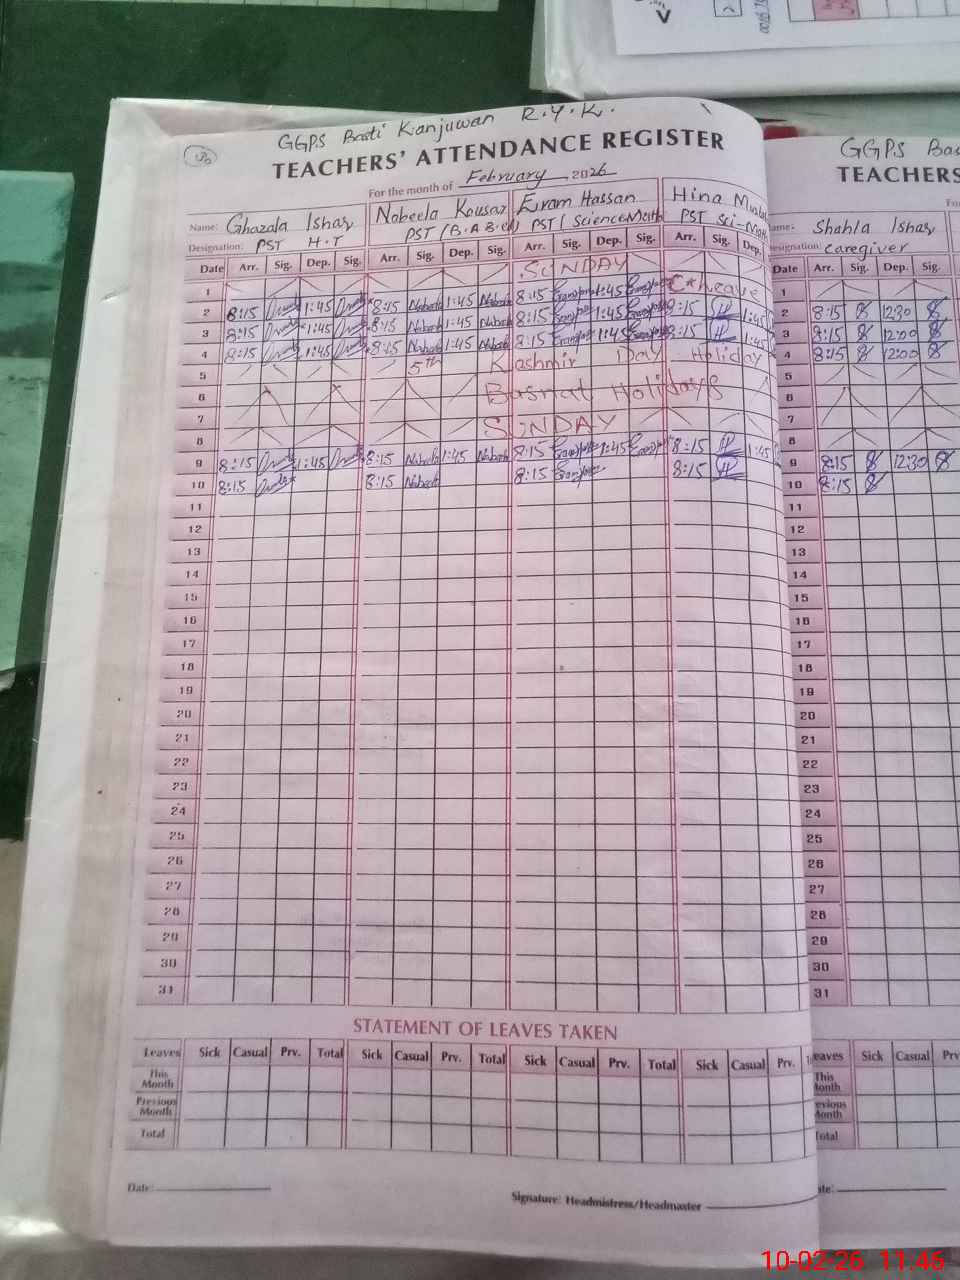 GGPS Basti Kanjuwan R.Y.K.
TEACHERS' ATTENDANCE REGISTER
For the month of February 2026
Name: Ghazala Ishaq Nabeela Kousar Erum Hassan Hina
Designation: PST H.T PST (B.A B.ed) PST (Science Math PST Sci-Math
Date Arr. Sig. Dep. Sig. Arr. Sig. Dep. Sig. Arr. Sig. Dep. Sig. Arr. Sig. Dep.
1 SUNDAY
2 8:15 1:45 8:15 Nabeela 1:45 Nabeela 8:15 1:45 C*Leave
3 8:15 1:45 8:15 Nabeela 1:45 Nabeela 8:15 1:45 8:15 1:45
4 8:15 1:45 8:15 Nabeela 1:45 Nabeela 8:15 1:45 8:15 1:45
5 5th Kashmir Day Holiday
6 Basnat Holidays
7
8 SUNDAY
9 8:15 1:45 8:15 Nabeela 1:45 Nabeela 8:15 1:45 8:15 1:45
10 8:15 8:15 Nabeela 8:15 8:15
11
12
13
14
15
16
17
18
19
20
21
22
23
24
25
26
27
28
29
30
31
STATEMENT OF LEAVES TAKEN
Leaves Sick Casual Prv. Total Sick Casual Prv. Total Sick Casual Prv. Total Sick Casual Prv.
This Month
Previous Month
Total
Date:
Signature: Headmistress/Headmaster
GGPS Bas
TEACHERS
Fo
ame: Shahla Ishaq
esignation: caregiver
Date Arr. Sig. Dep. Sig.
1
2 8:15 12:30
3 8:15 12:00
4 8:15 12:00
5
6
7
8
9 8:15 12:30
10 8:15
11
12
13
14
15
16
17
18
19
20
21
22
23
24
25
26
27
28
29
30
31
eaves Sick Casual Prv
This
onth
evious
onth
otal
ate:
10-02-26 11:46